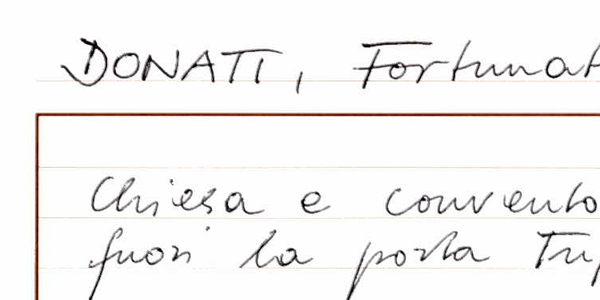 DONATI, Fortunat
Chiesa e convento
fuori la porta Tuf